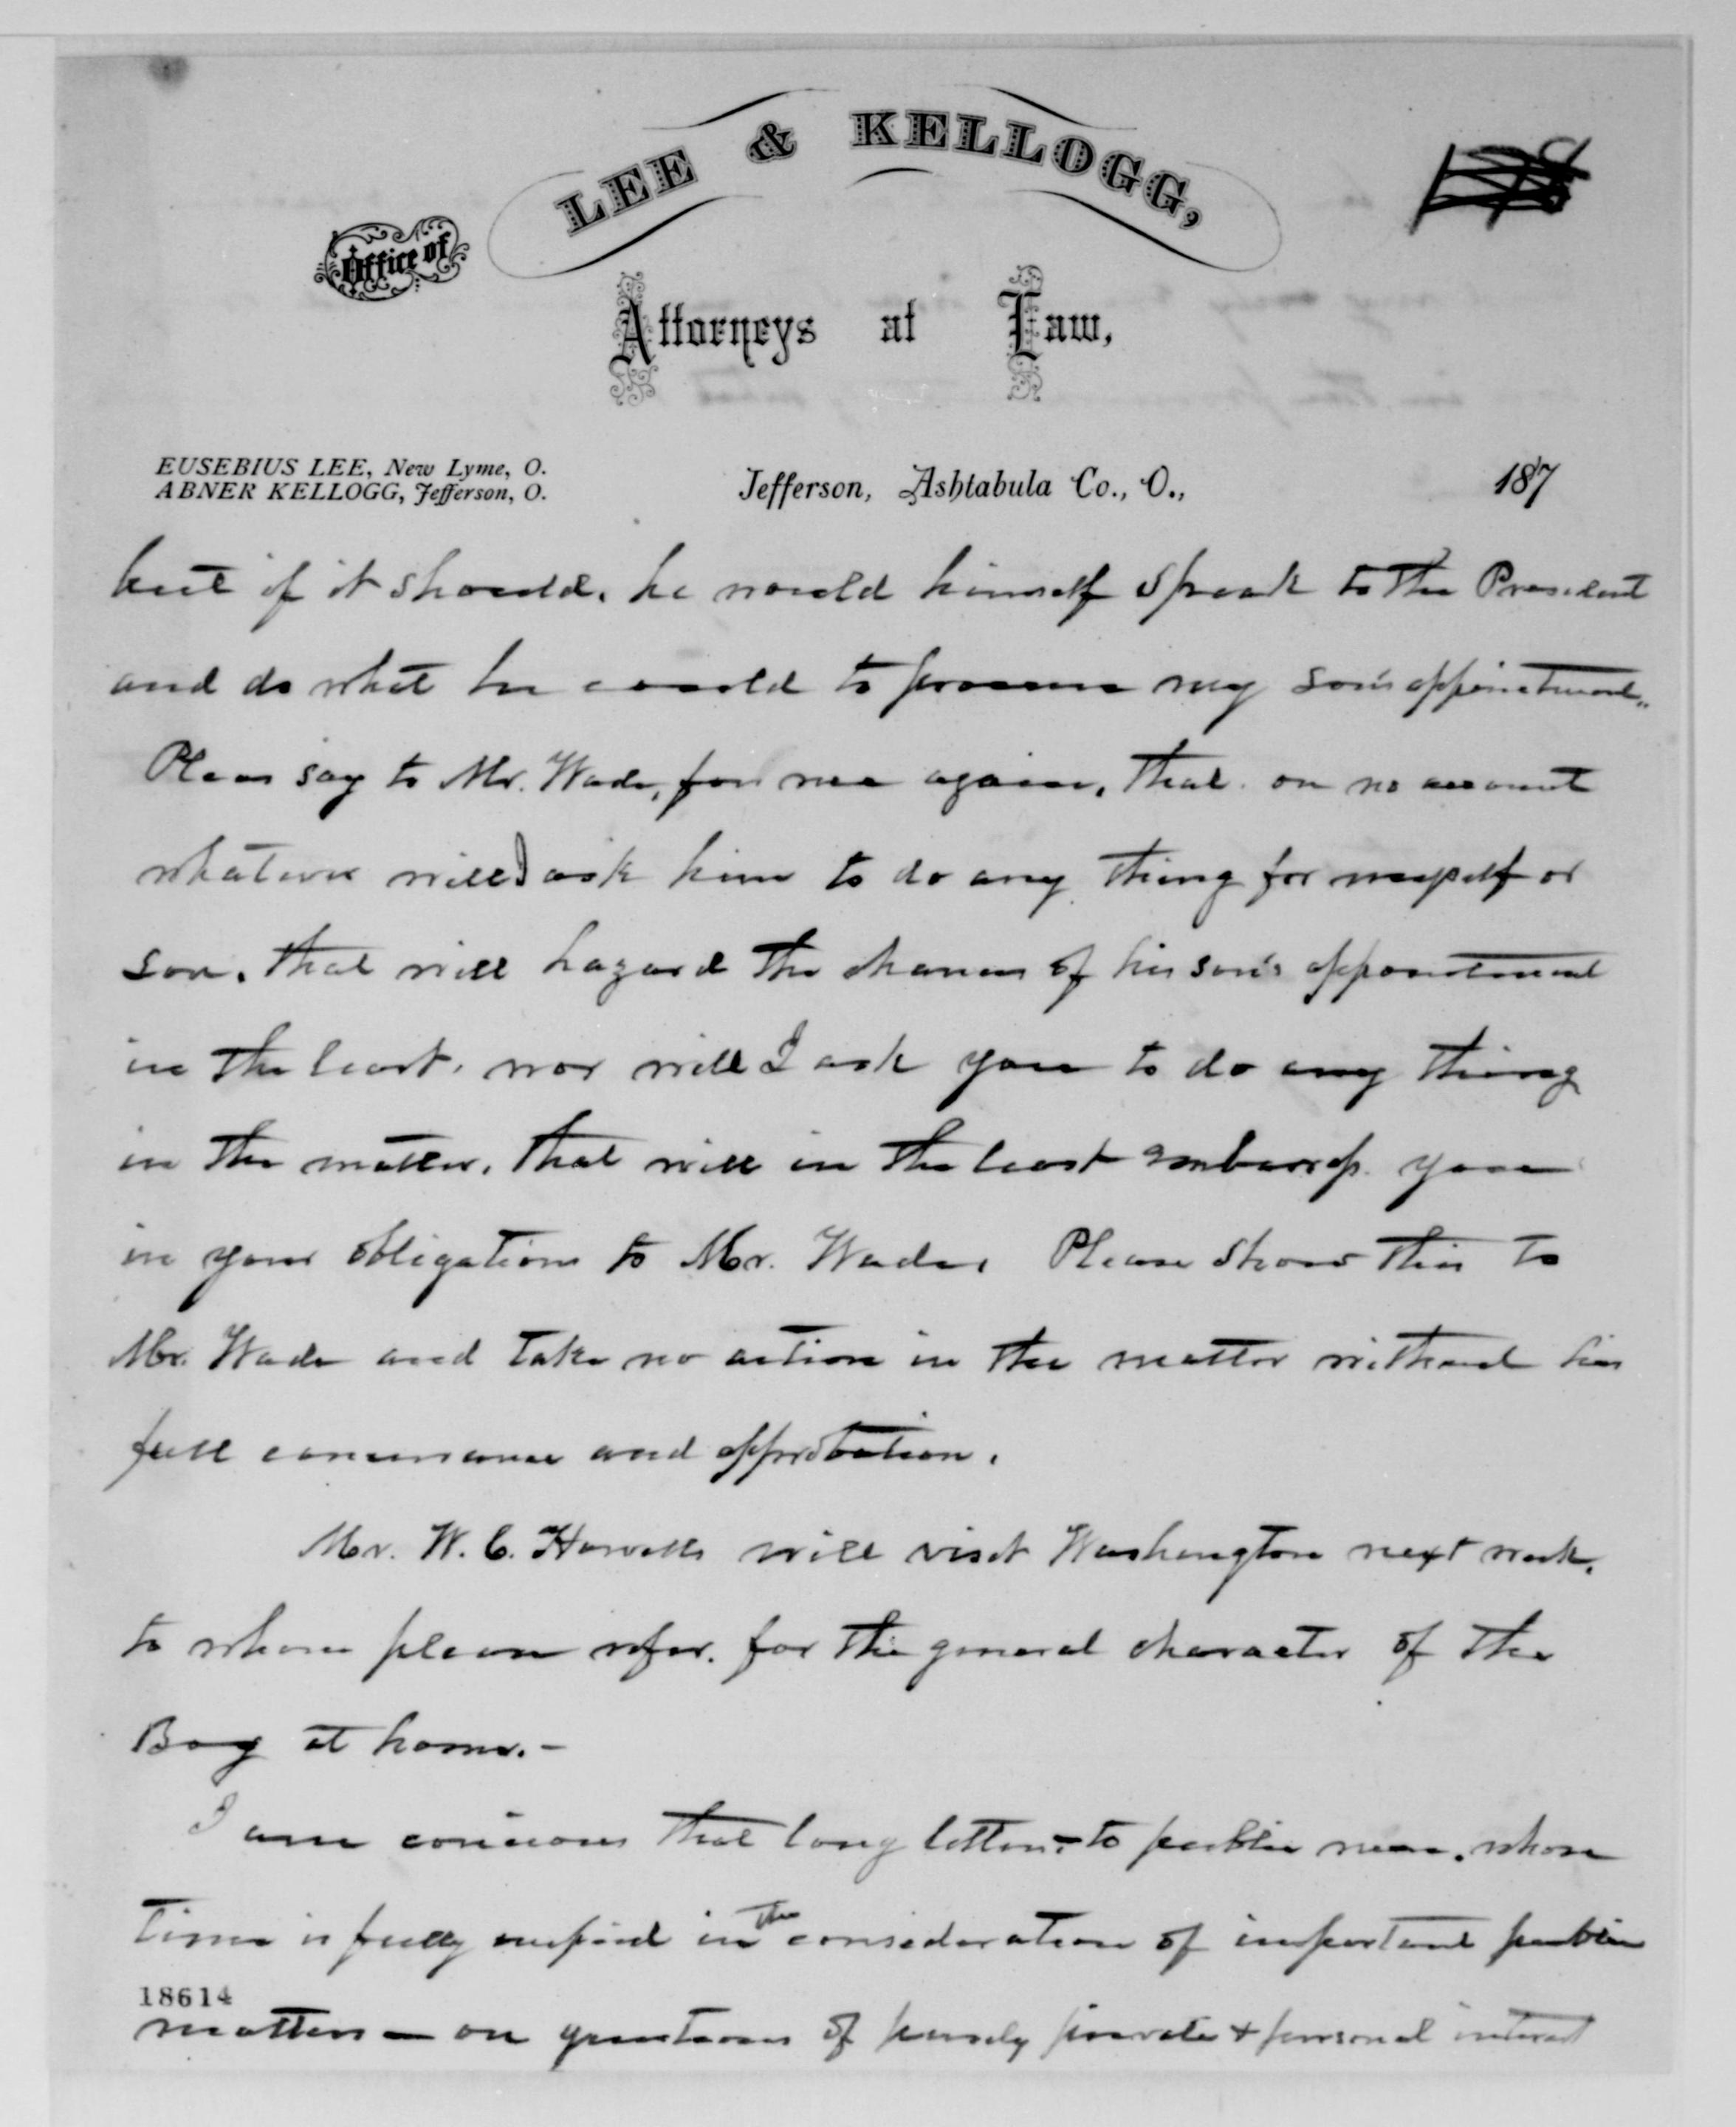 Office of
LEE & KELLOGG,
Attorneys at Law,
EUSEBIUS LEE, New Lyme, O.
ABNER KELLOGG, Jefferson, O.
Jefferson, Ashtabula Co., O., 187
but if it should, he would himself speak to the President
and do what he could to procure my son's appointment.
Please say to Mr. Wade, for me again, that on no account
whatever will I ask him to do any thing for myself or
son, that will hazard the chances of his son's appointment
in the least, nor will I ask you to do any thing
in the matter, that will in the least embarrass you
in your obligations to Mr. Wade. Please show this to
Mr. Wade and take no action in the matter without his
full concurrence and approbation.
Mr. W. C. Howells will visit Washington next week,
to whom please refer, for the general character of the
Boy at home.-
I am concious that long letters - to public men, whose
time is fully occupied in the consideration of important public
18614
matters - on questions of purely private & personal interest